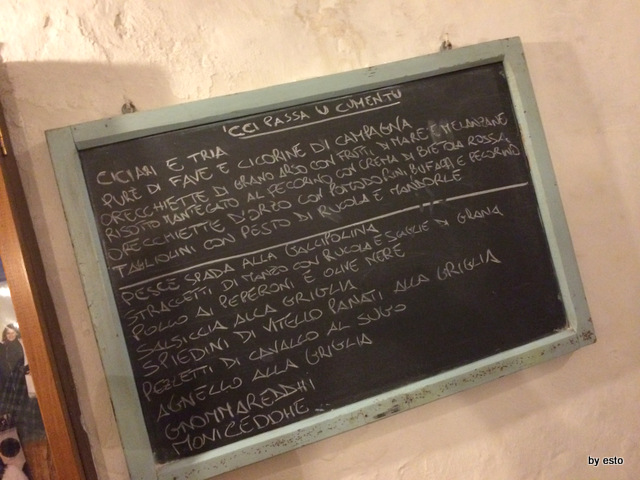 'CCI PASSA LU CUMENTU
CICIARI E TRIA
PURÈ DI FAVE E CICORINE DI CAMPAGNA
ORECCHIETTE DI GRANO ARSO CON FRUTTI DI MARE E MELANZANE
RISOTTO MANTECATO AL PECORINO CON CREMA DI BIETOLA ROSSA
ORECCHIETTE D'ORZO CON POMODORINI, BUFALA E PECORINO
TAGLIOLINI CON PESTO DI RUCOLA E MANDORLE
PESCE SPADA ALLA GALLIPOLINA
STRACCETTI DI MANZO CON RUCOLA E SCAGLIE DI GRANA
POLLO AI PEPERONI E OLIVE NERE
SALSICCIA ALLA GRIGLIA
SPIEDINI DI VITELLO PANATI ALLA GRIGLIA
PEZZETTI DI CAVALLO AL SUGO
AGNELLO ALLA GRIGLIA
GNOMMAREDDHI
MONICEDDHE...
by esto